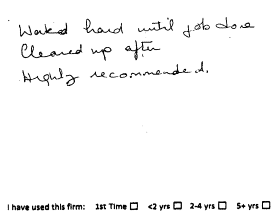 Worked hard until job done
Cleared up after
Highly recommended.
I have used this firm: 1st Time ☐ <2 yrs ☐ 2-4 yrs ☐ 5+ yrs ☐